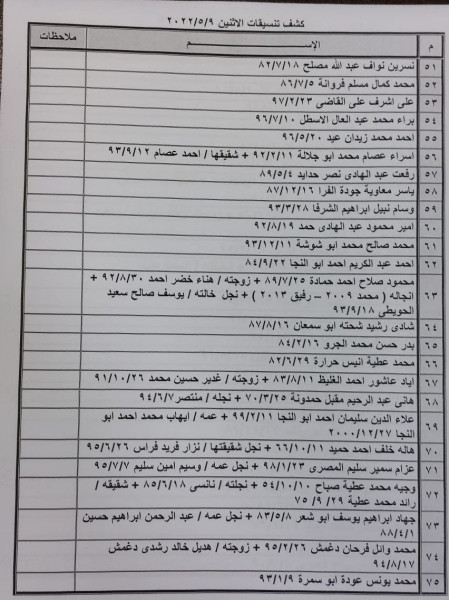 كشف تنسيقات الاثنين ٢٠٢٢/٥/٩
م الإســـــم ملاحظات
٥١ نسرين نواف عبد الله مصلح ٨٢/٧/١٨
٥٢ محمد كمال مسلم فروانة ٨٦/٧/٥
٥٣ على اشرف على القاضى ٩٧/٢/٢٣
٥٤ براء محمد عبد العال الاسطل ٩٦/٧/١٠
٥٥ احمد محمد زيدان عيد ٩٦/٥/٢٠
٥٦ اسراء عصام محمد ابو جلالة ٩٢/٢/١١ + شقيقها / احمد عصام ٩٣/٩/١٢
٥٧ رفعت عبد الهادى نصر حدايد ٨٩/٥/٤
٥٨ ياسر معاوية جودة الفرا ٨٧/١٢/١٦
٥٩ وسام نبيل ابراهيم الشرفا ٩٣/٣/٢٨
٦٠ امير محمود عبد الهادى حمد ٩٢/٨/١٩
٦١ محمد صالح محمد ابو شوشة ٩٣/١٢/١١
٦٢ احمد عبد الكريم احمد ابو النجا ٨٤/٩/٢٢
٦٣ محمود صلاح احمد حمادة ٨٩/٧/٢٥ + زوجته / هناء خضر احمد ٩٢/٨/٣٠ +
انجاله ( محمد ٢٠٠٩ – رفيق ٢٠١٣ ) + نجل خالته / يوسف صالح سعيد
الحويطى ٩٣/٩/١٨
٦٤ شادى رشيد شحته ابو سمعان ٨٧/٨/١٦
٦٥ بدر حسن محمد الجرو ٨٤/٢/١٦
٦٦ محمد عطية انيس حرارة ٨٢/٦/٢٩
٦٧ اياد عاشور احمد الغليظ ٨٣/٨/١١ + زوجته / غدير حسين محمد ٩١/١٠/٢٦
٦٨ هانى عبد الرحيم مقبل حمدونة ٧٠/٣/٢٥ + نجله / منتصر ٩٤/٦/٧
٦٩ علاء الدين سليمان احمد ابو النجا ٩٩/٢/١١ + عمه / ايهاب محمد احمد ابو
النجا ٢٠٠٠/١٢/٢٧
٧٠ هاله خلف احمد حميد ٦٦/١٠/١١ + نجل شقيقتها / نزار فريد فراس ٩٥/٦/٢٦
٧١ عزام سمير سليم المصرى ٩٨/١/٢٣ + نجل عمه / وسيم امين سليم ٩٥/٧/٧
٧٢ وجيه محمد عطية صباح ٥٤/١٠/١٠ + نجلته / نانسى ٨٥/٦/١٨ + شقيقه /
رائد محمد عطية ٢٩/ ٩/ ٧٥
٧٣ جهاد ابراهيم يوسف ابو شعر ٨٣/٥/٨ + نجل عمه / عبد الرحمن ابراهيم حسين
٨٨/٤/١
٧٤ محمد وائل فرحان دغمش ٩٥/٢/٢٦ + زوجته / هديل خالد رشدى دغمش
٩٤/٨/١٧
٧٥ محمد يونس عودة ابو سمرة ٩٣/١/٩